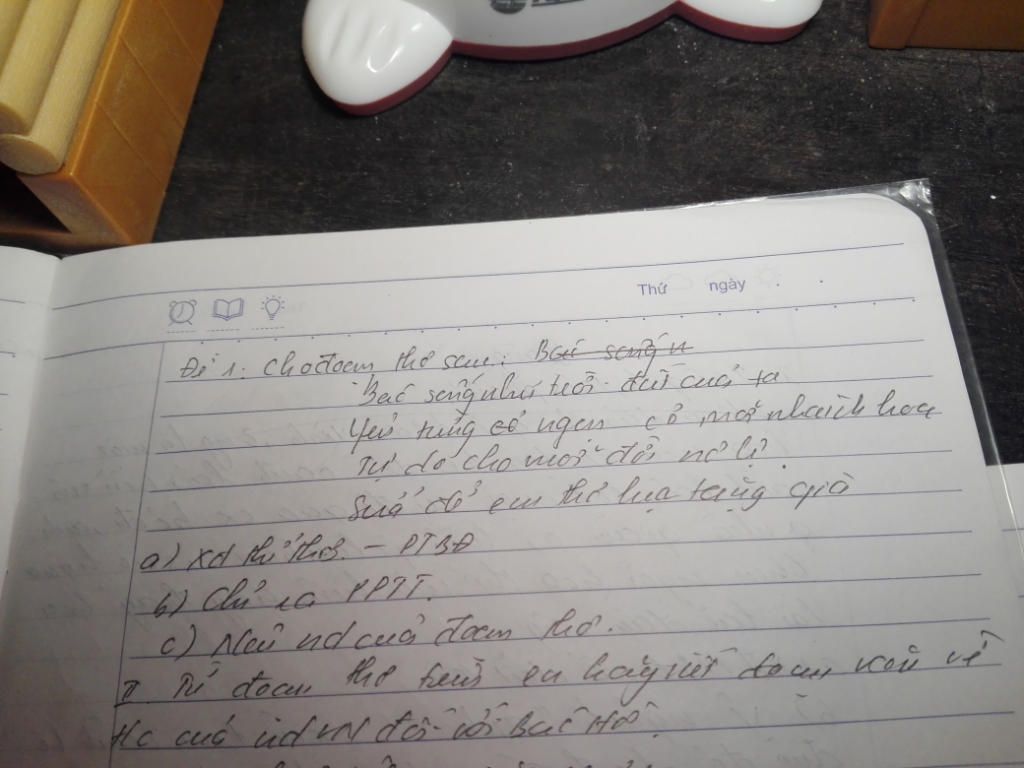 Thứ ngày
Đề 1. Cho đoạn thơ sau. Bác sống n
Bác sống như trời đất của ta
Yêu từng cỏ ngọn cỏ, mỗi nhành hoa
Tự do cho mỗi đời nô lệ.
Sữa để em thơ lụa tặng già
a) Xđ thể thơ. - PTBĐ
b) Chỉ ra PPTT.
c) Nêu nd của đoạn thơ.
II Từ đoạn thơ trên em hãy viết đoạn văn về
của đối với Bác Hồ.